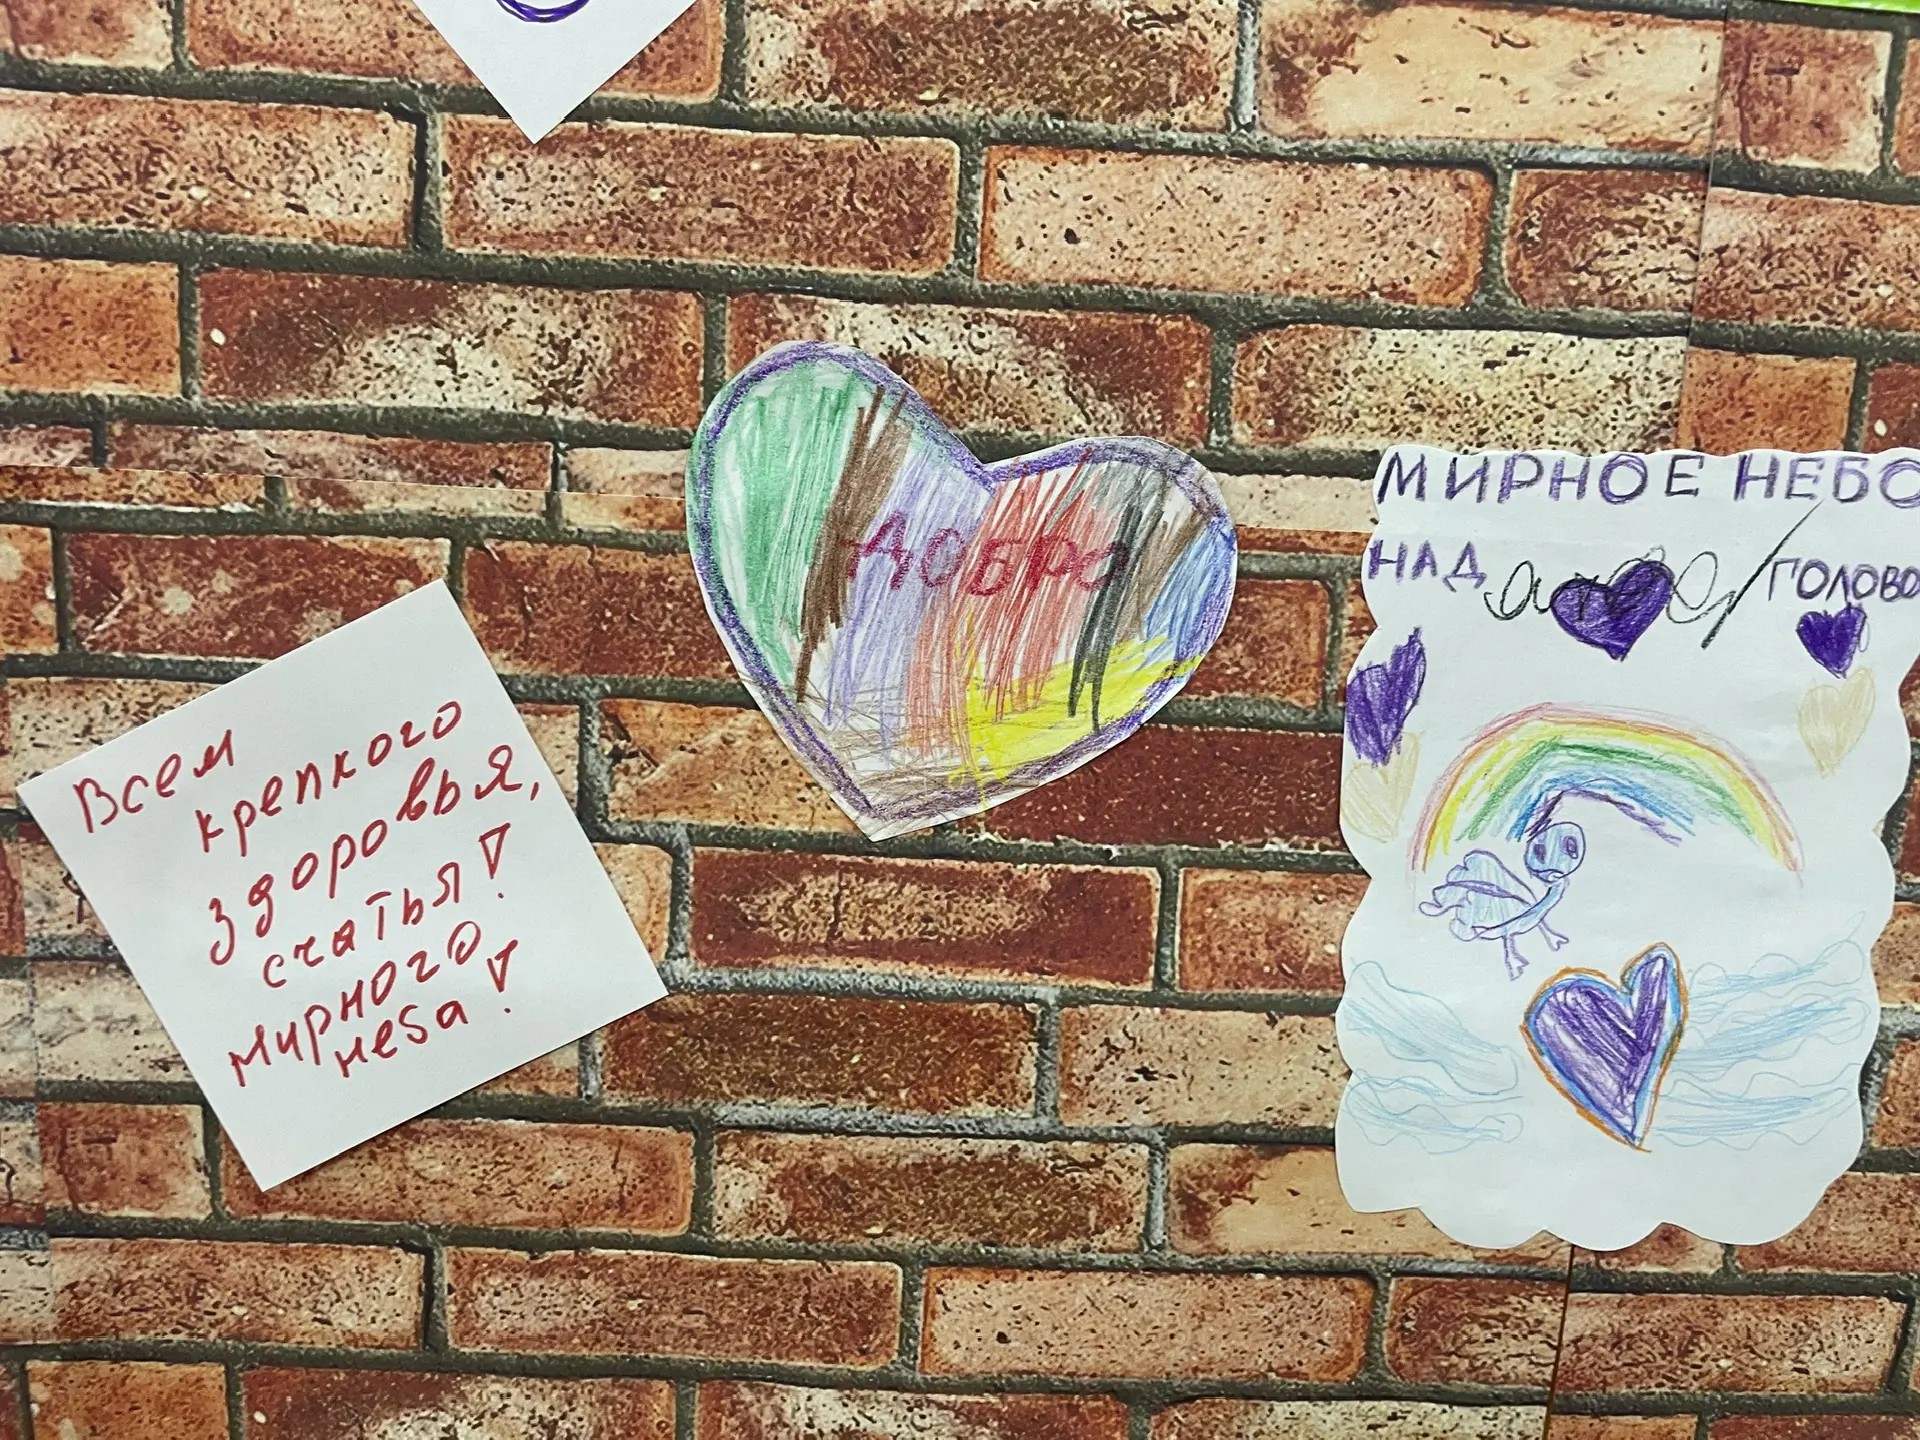 Всем
крепкого
здоровья,
счатья!
мирного
неба!
ДОБРО
МИРНОЕ НЕБО
НАД ГОЛОВО